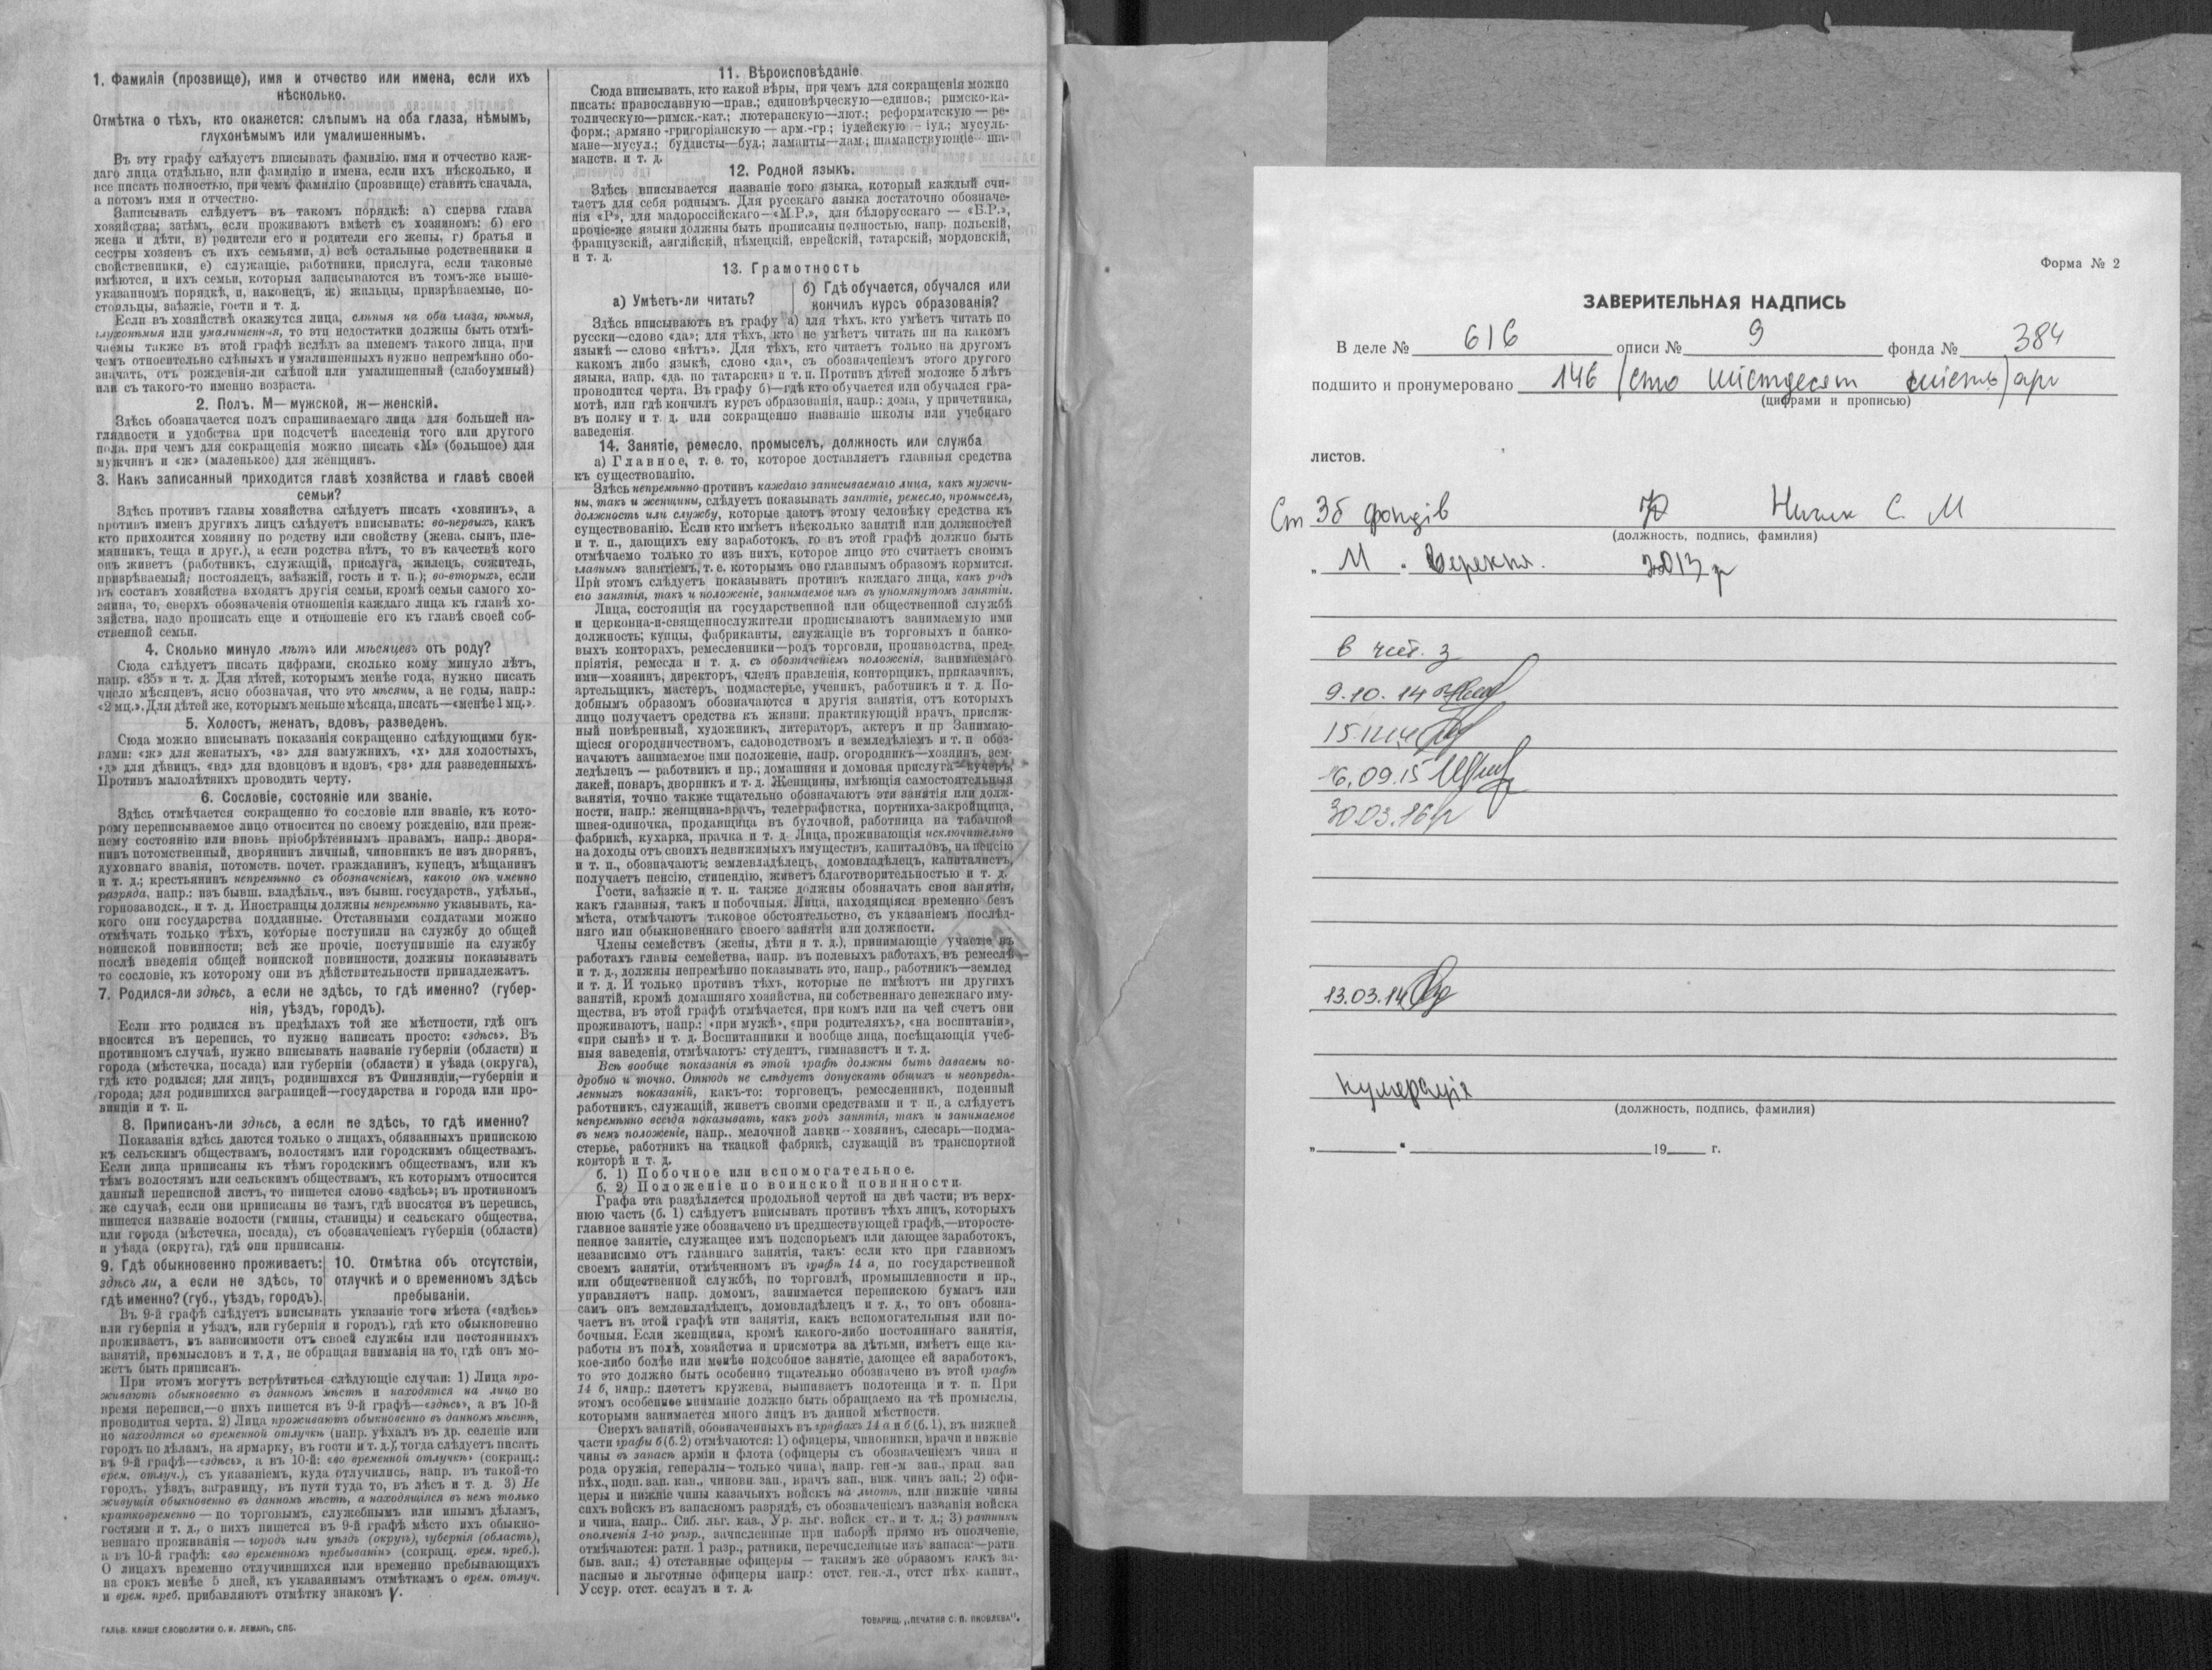 1. Фамилія (прозвище), имя и отчество или имена, если ихъ
нѣсколько.
Отмѣтка о тѣхъ, кто окажется: слѣпымъ на оба глаза, нѣмымъ,
глухонѣмымъ или умалишеннымъ.
Въ эту графу слѣдуетъ вписывать фамилію, имя и отчество каж-
даго лица отдѣльно, или фамилію и имена, если ихъ нѣсколько, и
все писать полностью, при чемъ фамилію (прозвище) ставить сначала,
а потомъ имя и отчество.
Записывать слѣдуетъ въ такомъ порядкѣ: а) сперва глава
хозяйства; затѣмъ, если проживаютъ вмѣстѣ съ хозяиномъ: б) его
жена и дѣти, в) родители его и родители его жены, г) братья и
сестры хозяевъ съ ихъ семьями, д) всѣ остальные родственники и
свойственники, е) служащіе, работники, прислуга, если таковые
имѣются, и ихъ семьи, которыя записываются въ томъ-же выше-
указанномъ порядкѣ, и, наконецъ, ж) жильцы, призрѣваемые, по-
стояльцы, заѣзжіе, гости и т. д.
Если въ хозяйствѣ окажутся лица, слѣпыя на оба глаза, нѣмыя,
глухонѣмыя или умалишенныя, то эти недостатки должны быть отмѣ-
чаемы также въ этой графѣ вслѣдъ за именемъ такого лица, при
чемъ относительно слѣпыхъ и умалишенныхъ нужно непремѣнно обо-
значать, отъ рожденія-ли слѣпой или умалишенный (слабоумный)
или съ такого-то именно возраста.
2. Полъ. М—мужской, ж—женскій.
Здѣсь обозначается полъ спрашиваемаго лица для большей на-
глядности и удобства при подсчетѣ населенія того или другого
пола, при чемъ для сокращенія можно писать «М» (большое) для
мужчинъ и «ж» (маленькое) для женщинъ.
3. Какъ записанный приходится главѣ хозяйства и главѣ своей
семьи?
Здѣсь противъ главы хозяйства слѣдуетъ писать «хозяинъ», а
противъ именъ другихъ лицъ слѣдуетъ вписывать: во-первыхъ, какъ
кто приходится хозяину по родству или свойству (жена, сынъ, пле-
мянникъ, теща и друг.), а если родства нѣтъ, то въ качествѣ кого
онъ живетъ (работникъ, служащій, прислуга, жилецъ, сожитель,
призрѣваемый; постоялецъ, заѣзжій, гость и т. п.); во-вторыхъ, если
въ составъ хозяйства входятъ другія семьи, кромѣ семьи самого хо-
зяина, то, сверхъ обозначенія отношенія каждаго лица къ главѣ хо-
зяйства, надо прописать еще и отношеніе его къ главѣ своей соб-
ственной семьи.
4. Сколько минуло лѣтъ или мѣсяцевъ отъ роду?
Сюда слѣдуетъ писать цифрами, сколько кому минуло лѣтъ,
напр. «35» и т. д. Для дѣтей, которымъ менѣе года, нужно писать
число мѣсяцевъ, ясно обозначая, что это мѣсяцы, а не годы, напр.:
«2 мц.». Для дѣтей же, которымъ меньше мѣсяца, писать—«менѣе 1 мц.».
5. Холостъ, женатъ, вдовъ, разведенъ.
Сюда можно вписывать показанія сокращенно слѣдующими бук-
вами: «ж» для женатыхъ, «з» для замужнихъ, «х» для холостыхъ,
«д» для дѣвицъ, «вд» для вдовцовъ и вдовъ, «рз» для разведенныхъ.
Противъ малолѣтнихъ проводить черту.
6. Сословіе, состояніе или званіе.
Здѣсь отмѣчается сокращенно то сословіе или званіе, къ кото-
рому переписываемое лицо относится по своему рожденію, или преж-
нему состоянію или вновь пріобрѣтеннымъ правамъ, напр.: дворя-
нинъ потомственный, дворянинъ личный, чиновникъ не изъ дворянъ,
духовнаго званія, потомств. почет. гражданинъ, купецъ, мѣщанинъ
и т. д.; крестьянинъ непремѣнно съ обозначеніемъ, какого онъ именно
разряда, напр.: изъ бывш. владѣльч., изъ бывш. государств., удѣльн.,
горнозаводск., и т. д. Иностранцы должны непремѣнно указывать, ка-
кого они государства подданные. Отставными солдатами можно
отмѣчать только тѣхъ, которые поступили на службу до общей
воинской повинности; всѣ же прочіе, поступившіе на службу
послѣ введенія общей воинской повинности, должны показывать
то сословіе, къ которому они въ дѣйствительности принадлежатъ.
7. Родился-ли здѣсь, а если не здѣсь, то гдѣ именно? (губер-
нія, уѣздъ, городъ).
Если кто родился въ предѣлахъ той же мѣстности, гдѣ онъ
вносится въ перепись, то нужно написать просто: «здѣсь». Въ
противномъ случаѣ, нужно вписывать названіе губерніи (области) и
города (мѣстечка, посада) или губерніи (области) и уѣзда (округа),
гдѣ кто родился; для лицъ, родившихся въ Финляндіи,—губерніи и
города; для родившихся заграницей—государства и города или про-
винціи и т. п.
8. Приписанъ-ли здѣсь, а если не здѣсь, то гдѣ именно?
Показанія здѣсь даются только о лицахъ, обязанныхъ припискою
къ сельскимъ обществамъ, волостямъ или городскимъ обществамъ.
Если лица приписаны къ тѣмъ городскимъ обществамъ, или къ
тѣмъ волостямъ или сельскимъ обществамъ, къ которымъ относится
данный переписной листъ, то пишется слово «здѣсь»; въ противномъ
же случаѣ, если они приписаны не тамъ, гдѣ вносятся въ перепись,
пишется названіе волости (гмины, станицы) и сельскаго общества,
или города (мѣстечка, посада), съ обозначеніемъ губерніи (области)
и уѣзда (округа), гдѣ они приписаны.
9. Гдѣ обыкновенно проживаетъ:
здѣсь ли, а если не здѣсь, то
гдѣ именно? (губ., уѣздъ, городъ).
10. Отмѣтка объ отсутствіи,
отлучкѣ и о временномъ здѣсь
пребываніи.
Въ 9-й графѣ слѣдуетъ вписывать указаніе того мѣста («здѣсь»
или губернія и уѣздъ, или губернія и городъ), гдѣ кто обыкновенно
проживаетъ, въ зависимости отъ своей службы или постоянныхъ
занятій, промысловъ и т. д., не обращая вниманія на то, гдѣ онъ мо-
жетъ быть приписанъ.
При этомъ могутъ встрѣтиться слѣдующіе случаи: 1) Лица про-
живаютъ обыкновенно въ данномъ мѣстѣ и находятся на лицо во
время переписи,—о нихъ пишется въ 9-й графѣ—«здѣсь», а въ 10-й
проводится черта. 2) Лица проживаютъ обыкновенно въ данномъ мѣстѣ,
но находятся во временной отлучкѣ (напр. уѣхалъ въ др. селеніе или
городъ по дѣламъ, на ярмарку, въ гости и т. д.), тогда слѣдуетъ писать
въ 9-й графѣ—«здѣсь», а въ 10-й: «во временной отлучкѣ» (сокращ.:
врем. отлуч.), съ указаніемъ, куда отлучились, напр. въ такой-то
городъ, уѣздъ, заграницу, въ пути туда то, въ лѣсъ и т. д. 3) Не
живущія обыкновенно въ данномъ мѣстѣ, а находящіяся въ немъ только
кратковременно — по торговымъ, служебнымъ или инымъ дѣламъ,
гостями и т. д., о нихъ пишется въ 9-й графѣ мѣсто ихъ обыкно-
веннаго проживанія — городъ или уѣздъ (округъ), губернія (область),
а въ 10-й графѣ: «во временномъ пребываніи» (сокращ. врем. преб.).
О лицахъ временно отлучившихся или временно пребывающихъ
на срокъ менѣе 5 дней, къ указаннымъ отмѣткамъ о врем. отлуч.
и врем. преб. прибавляютъ отмѣтку знакомъ V.
ГАЛЬВ. КЛИШЕ СЛОВОЛИТНИ О. И. ЛЕМАНЪ, СПБ.
11. Вѣроисповѣданіе.
Сюда вписывать, кто какой вѣры, при чемъ для сокращенія можно
писать: православную—прав.; единовѣрческую—единов.; римско-ка-
толическую—римск.-кат.; лютеранскую—лют.; реформатскую — ре-
форм.; армяно-григоріанскую — арм.-гр.; іудейскую — іуд.; мусуль-
мане—мусул.; буддисты—буд.; ламаиты—лам.; шаманствующіе—ша-
манств. и т. д.
12. Родной языкъ.
Здѣсь вписывается названіе того языка, который каждый счи-
таетъ для себя роднымъ. Для русскаго языка достаточно обозначе-
нія «Р», для малороссійскаго—«М.Р.», для бѣлорусскаго — «Б.Р.»,
прочіе-же языки должны быть прописаны полностью, напр. польскій,
французскій, англійскій, нѣмецкій, еврейскій, татарскій, мордовскій,
и т. д.
13. Грамотность
а) Умѣетъ-ли читать?
б) Гдѣ обучается, обучался или
кончилъ курсъ образованія?
Здѣсь вписываютъ въ графу а) для тѣхъ, кто умѣетъ читать по
русски—слово «да»; для тѣхъ, кто не умѣетъ читать ни на какомъ
языкѣ — слово «нѣтъ». Для тѣхъ, кто читаетъ только на другомъ
какомъ либо языкѣ, слово «да», съ обозначеніемъ этого другого
языка, напр. «да, по татарски» и т. п. Противъ дѣтей моложе 5 лѣтъ
проводится черта. Въ графу б)—гдѣ кто обучается или обучался гра-
мотѣ, или гдѣ кончилъ курсъ образованія, напр.: дома, у причетника,
въ полку и т. д. или сокращенно названіе школы или учебнаго
заведенія.
14. Занятіе, ремесло, промыселъ, должность или служба
а) Главное, т. е. то, которое доставляетъ главныя средства
къ существованію.
Здѣсь непремѣнно противъ каждаго записываемаго лица, какъ мужчи-
ны, такъ и женщины, слѣдуетъ показывать занятіе, ремесло, промыселъ,
должность или службу, которые даютъ этому человѣку средства къ
существованію. Если кто имѣетъ нѣсколько занятій или должностей
и т. п., дающихъ ему заработокъ, то въ этой графѣ должно быть
отмѣчаемо только то изъ нихъ, которое лицо это считаетъ своимъ
главнымъ занятіемъ, т. е. которымъ оно главнымъ образомъ кормится.
При этомъ слѣдуетъ показывать противъ каждаго лица, какъ родъ
его занятія, такъ и положеніе, занимаемое имъ въ упомянутомъ занятіи.
Лица, состоящія на государственной или общественной службѣ
и церковно-и-священнослужители прописываютъ занимаемую ими
должность; купцы, фабриканты, служащіе въ торговыхъ и банко-
выхъ конторахъ, ремесленники—родъ торговли, производства, пред-
пріятія, ремесла и т. д. съ обозначеніемъ положенія, занимаемаго
ими—хозяинъ, директоръ, членъ правленія, конторщикъ, приказчикъ,
артельщикъ, мастеръ, подмастерье, ученикъ, работникъ и т. д. По-
добнымъ образомъ обозначаются и другія занятія, отъ которыхъ
лицо получаетъ средства къ жизни: практикующій врачъ, присяж-
ный повѣренный, художникъ, литераторъ, актеръ и пр Занимаю-
щіеся огородничествомъ, садоводствомъ и земледѣліемъ и т. п обоз-
начаютъ занимаемое ими положеніе, напр. огородникъ—хозяинъ, зем-
ледѣлецъ — работникъ и пр.; домашняя и домовая прислуга—кучеръ,
лакей, поваръ, дворникъ и т. д. Женщины, имѣющія самостоятельныя
занятія, точно также тщательно обозначаютъ эти занятія или долж-
ности, напр.: женщина-врачъ, телеграфистка, портниха-закройщица,
швея-одиночка, продавщица въ булочной, работница на табачной
фабрикѣ, кухарка, прачка и т. д. Лица, проживающія исключительно
на доходы отъ своихъ недвижимыхъ имуществъ, капиталовъ, на пенсію
и т. п., обозначаютъ: землевладѣлецъ, домовладѣлецъ, капиталистъ,
получаетъ пенсію, стипендію, живетъ благотворительностью и т. д.
Гости, заѣзжіе и т. п. также должны обозначать свои занятія,
какъ главныя, такъ и побочныя. Лица, находящіяся временно безъ
мѣста, отмѣчаютъ таковое обстоятельство, съ указаніемъ послѣд-
няго или обыкновеннаго своего занятія или должности.
Члены семействъ (жены, дѣти и т. д.), принимающіе участіе въ
работахъ главы семейства, напр. въ полевыхъ работахъ, въ ремеслѣ
и т. д., должны непремѣнно показывать это, напр., работникъ—землед
и т. д. И только противъ тѣхъ, которые не имѣютъ ни другихъ
занятій, кромѣ домашняго хозяйства, ни собственнаго денежнаго иму-
щества, въ этой графѣ отмѣчается, при комъ или на чей счетъ они
проживаютъ, напр.: «при мужѣ», «при родителяхъ», «на воспитаніи»,
«при сынѣ» и т. д. Воспитанники и вообще лица, посѣщающія учеб-
ныя заведенія, отмѣчаютъ: студентъ, гимназистъ и т. д.
Всѣ вообще показанія въ этой графѣ должны быть даваемы по-
дробно и точно. Отнюдь не слѣдуетъ допускать общихъ и неопредѣ-
ленныхъ показаній, какъ-то: торговецъ, ремесленникъ, поденный
работникъ, служащій, живетъ своими средствами и т п., а слѣдуетъ
непремѣнно всегда показывать, какъ родъ занятія, такъ и занимаемое
въ немъ положеніе, напр., мелочной лавки—хозяинъ, слесарь—подма-
стерье, работникъ на ткацкой фабрикѣ, служащій въ транспортной
конторѣ и т. д.
б. 1) Побочное или вспомогательное.
б. 2) Положеніе по воинской повинности.
Графа эта раздѣляется продольной чертой на двѣ части; въ верх-
нюю часть (б. 1) слѣдуетъ вписывать противъ тѣхъ лицъ, которыхъ
главное занятіе уже обозначено въ предшествующей графѣ,—второсте-
пенное занятіе, служащее имъ подспорьемъ или дающее заработокъ,
независимо отъ главнаго занятія, такъ: если кто при главномъ
своемъ занятіи, отмѣченномъ въ графѣ 14 а, по государственной
или общественной службѣ, по торговлѣ, промышленности и пр.,
управляетъ напр. домомъ, занимается перепискою бумагъ или
самъ онъ землевладѣлецъ, домовладѣлецъ и т. д., то онъ обозна-
чаетъ въ этой графѣ эти занятія, какъ вспомогательныя или по-
бочныя. Если женщина, кромѣ какого-либо постояннаго занятія,
работы въ полѣ, хозяйства и присмотра за дѣтьми, имѣетъ еще ка-
кое-либо болѣе или менѣе подсобное занятіе, дающее ей заработокъ,
то это должно быть особенно тщательно обозначено въ этой графѣ
14 б, напр.: плететъ кружева, вышиваетъ полотенца и т. п. При
этомъ особенное вниманіе должно быть обращаемо на тѣ промыслы,
которыми занимается много лицъ въ данной мѣстности.
Сверхъ занятій, обозначенныхъ въ графахъ 14 а и б (б. 1), въ нижней
части графы б (б. 2) отмѣчаются: 1) офицеры, чиновники, врачи и нижніе
чины въ запасѣ арміи и флота (офицеры съ обозначеніемъ чина и
рода оружія, генералы—только чина), напр. ген-м зап., прап. зап
пѣх., подп. зап. кав., чиновн. зап., врачъ зап., ниж. чинъ зап.; 2) офи-
церы и нижніе чины казачьихъ войскъ на льготѣ, или нижніе чины
сихъ войскъ въ запасномъ разрядѣ, съ обозначеніемъ названія войска
и чина, напр.. Сиб. льг. каз., Ур. льг. войск. ст., и т. д.; 3) ратники
ополченія 1-го разр., зачисленные при наборѣ прямо въ ополченіе,
отмѣчаются: ратн. 1 разр., ратники, перечисленные изъ запаса:—ратн.
быв. зап.; 4) отставные офицеры — такимъ же образомъ какъ за-
пасные и льготные офицеры напр.: отст. ген.-л., отст пѣх. капит.,
Уссур. отст. есаулъ и т. д.
ТОВАРИЩ. „ПЕЧАТНЯ С. П. ЯКОВЛЕВА“.
Форма № 2
ЗАВЕРИТЕЛЬНАЯ НАДПИСЬ
В деле № 616 описи № 9 фонда № 384
подшито и пронумеровано 146 (сто шістдесят шість) арк
(цифрами и прописью)
листов.
Ст Зб фондів С. М
(должность, подпись, фамилия)
„ 11 “ 2013 р
в чит. з
9.10.14
15.12.14
16.09.15
30.03.16р
13.03.14
нумерація
(должность, подпись, фамилия)
„ “ 19 г.